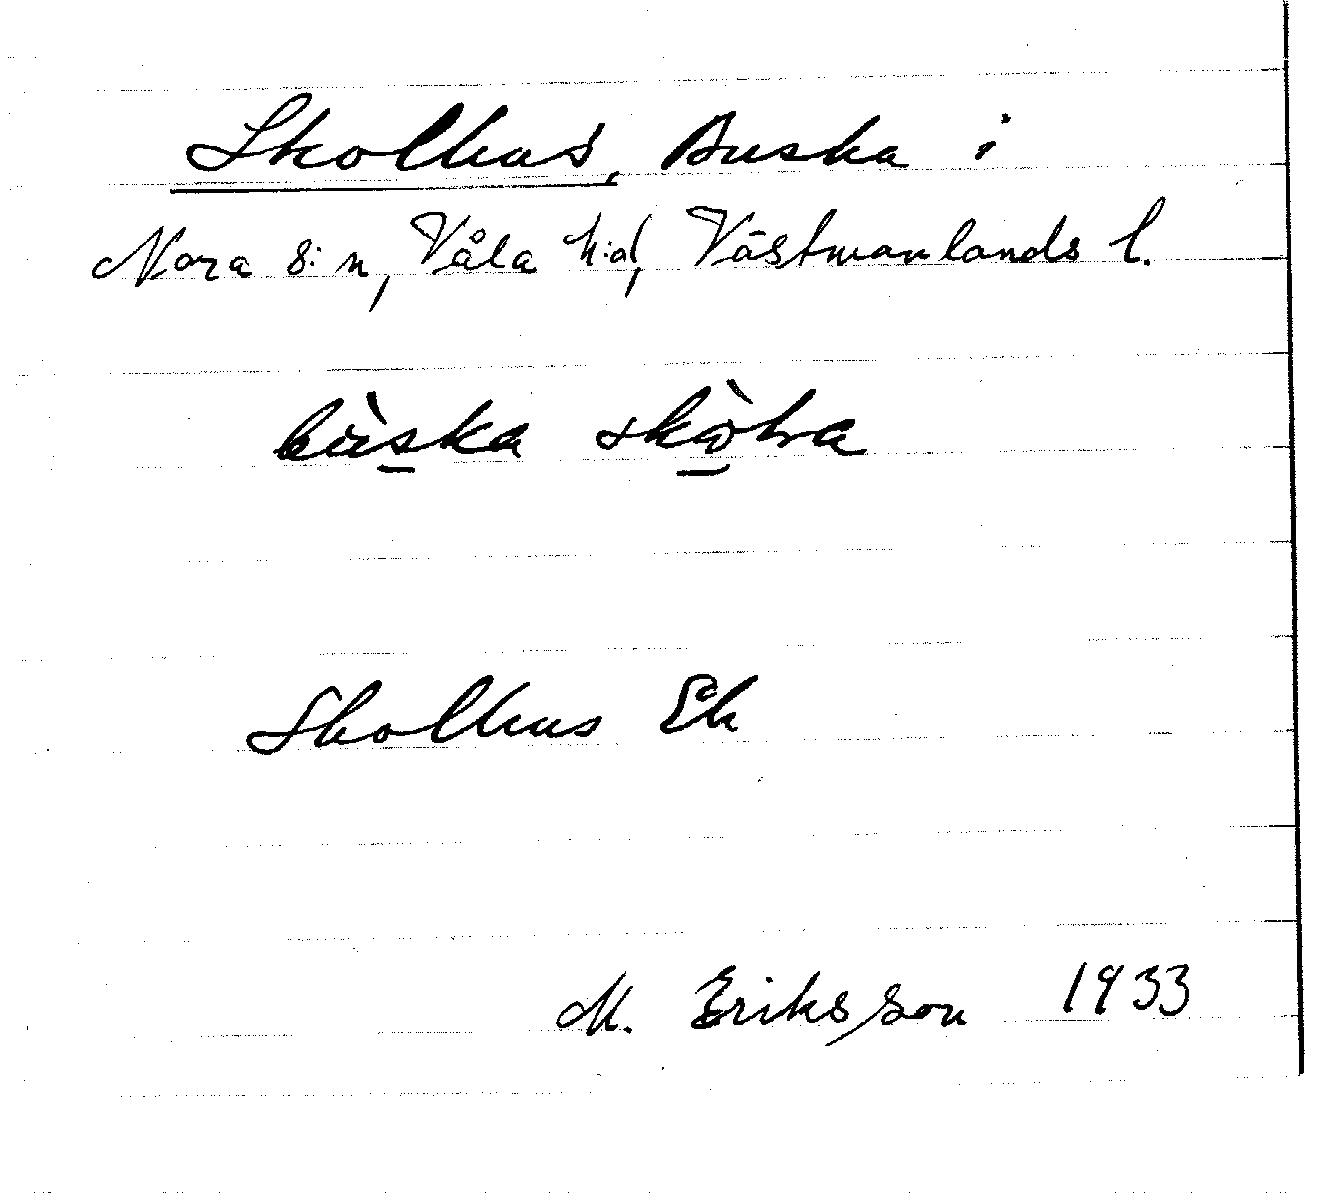 Skolhus, Buska i
Nora s:n, Våla h:d, Västmanlands l.
bùska
Skolhus Ek
M. Eriksson 1933